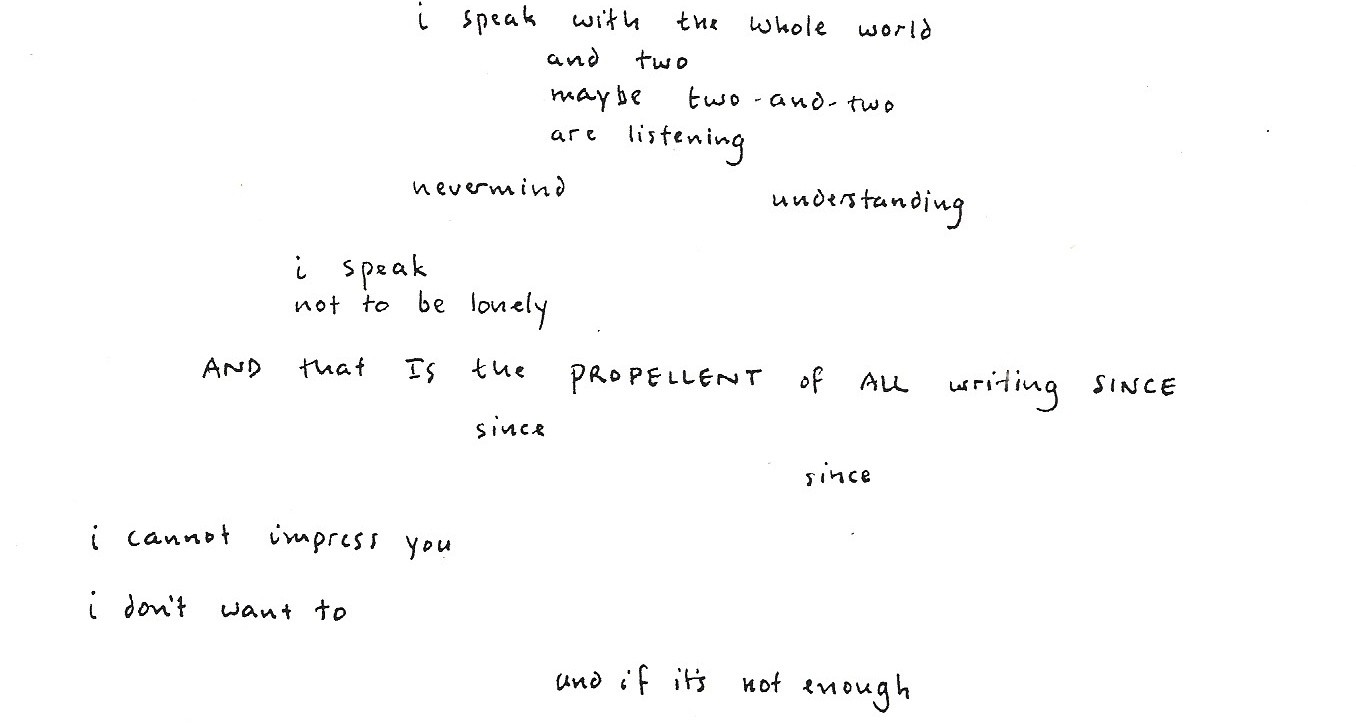 i speak with the whole world
and two
maybe two-and-two
are listening
nevermind understanding
i speak
not to be lonely
AND that IS the PROPELLENT of ALL writing SINCE
since
since
i cannot impress you
i don't want to
and if it's not enough